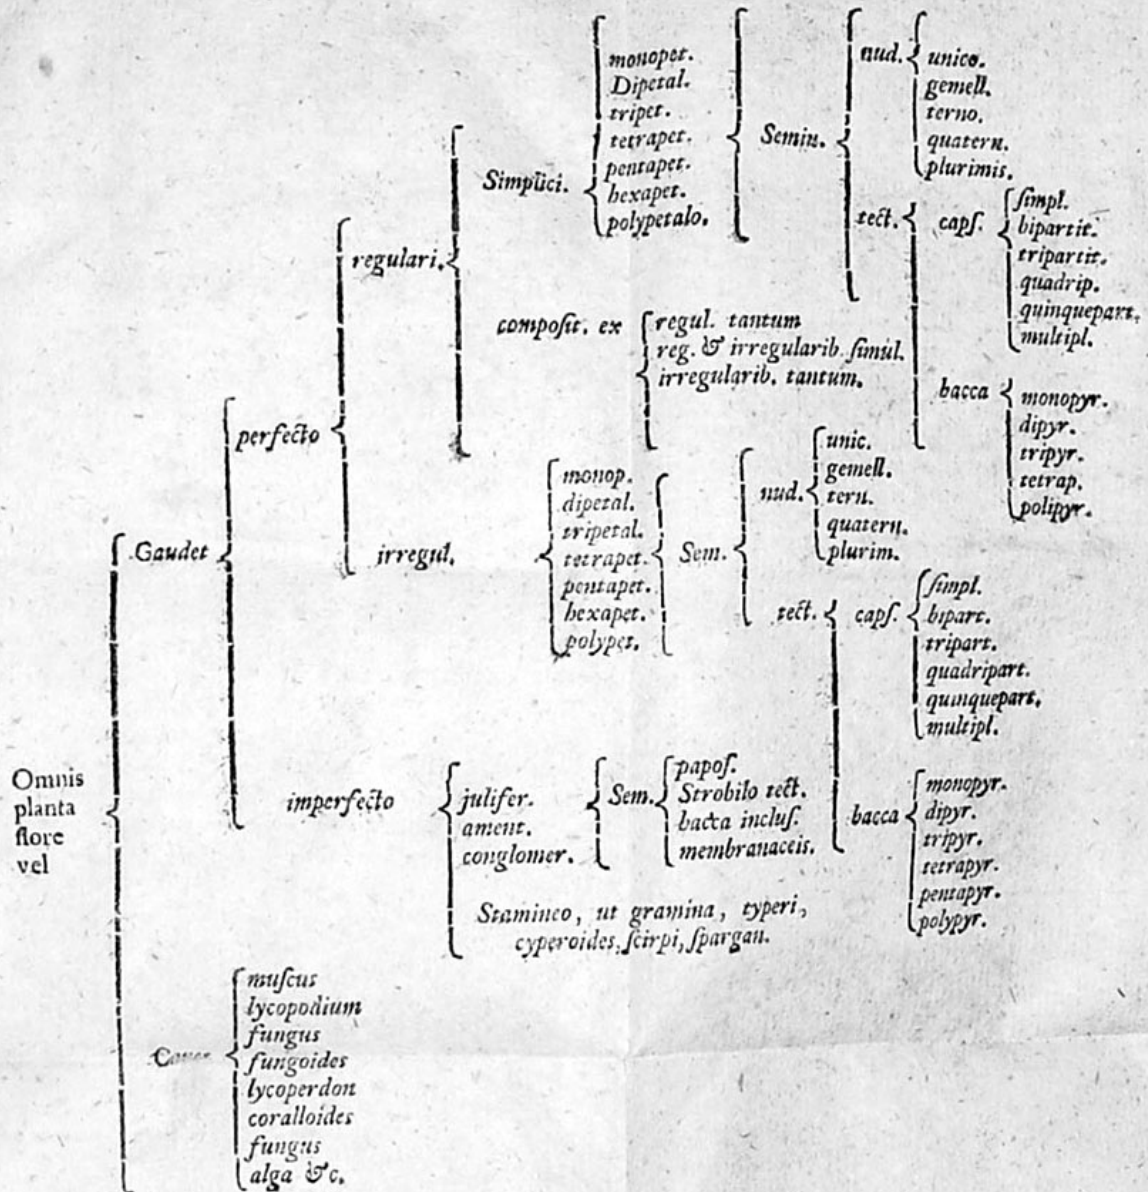 Omnis
planta
flore
vel
Gaudet
perfecto
regulari.
Simplici.
monopet.
Dipetal.
tripet.
tetrapet.
pentapet.
hexapet.
polypetalo.
Semin.
nud.
unico.
gemell.
terno.
quatern.
plurimis.
tect.
capſ.
ſimpl.
bipartit.
tripartit.
quadrip.
quinquepart.
multipl.
bacca
monopyr.
dipyr.
tripyr.
tetrap.
polipyr.
compoſit. ex
regul. tantum
reg. & irregularib. ſimul.
irregularib. tantum.
irregul.
monop.
dipetal.
tripetal.
tetrapet.
pentapet.
hexapet.
polypet.
Sem.
nud.
unic.
gemell.
tern.
quatern.
plurim.
tect.
capſ.
ſimpl.
bipart.
tripart.
quadripart.
quinquepart.
multipl.
bacca
monopyr.
dipyr.
tripyr.
tetrapyr.
pentapyr.
polypyr.
imperfecto
julifer.
ament.
conglomer.
Sem.
papoſ.
Strobilo tect.
bacca incluſ.
membranaceis.
Stamineo, ut gramina, typeri,
cyperoides, ſcirpi, ſpargan.
muſcus
lycopodium
fungus
fungoides
lycoperdon
coralloides
fungus
alga &c.